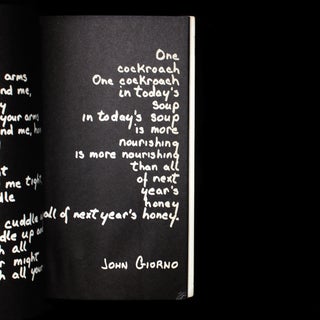 arms
nd me,
y
your arms
nd me,
t
me tight
dle
cuddle
dle up
h all
r might
h all your
One
cockroach
One cockroach
in today's
soup
in today's soup
is more
nourishing
is more nourishing
than all
of next
year's
honey
all of next year's honey.
JOHN GIORNO